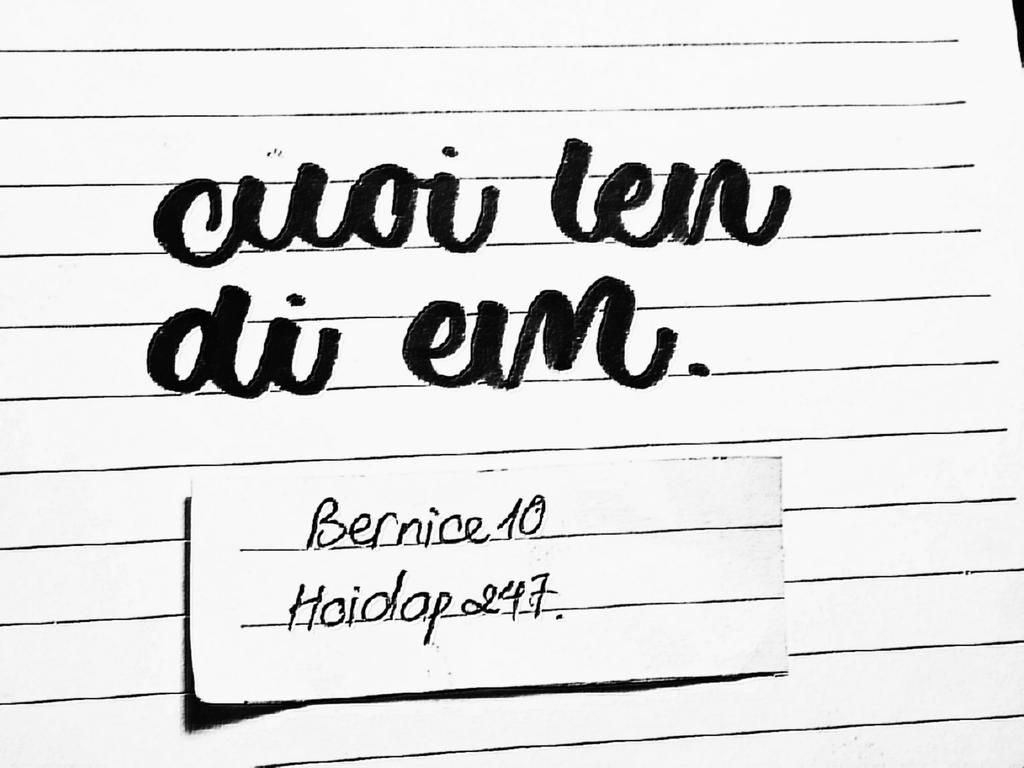 cuoi len
di em.
Bernice 10
Hoidap 247.